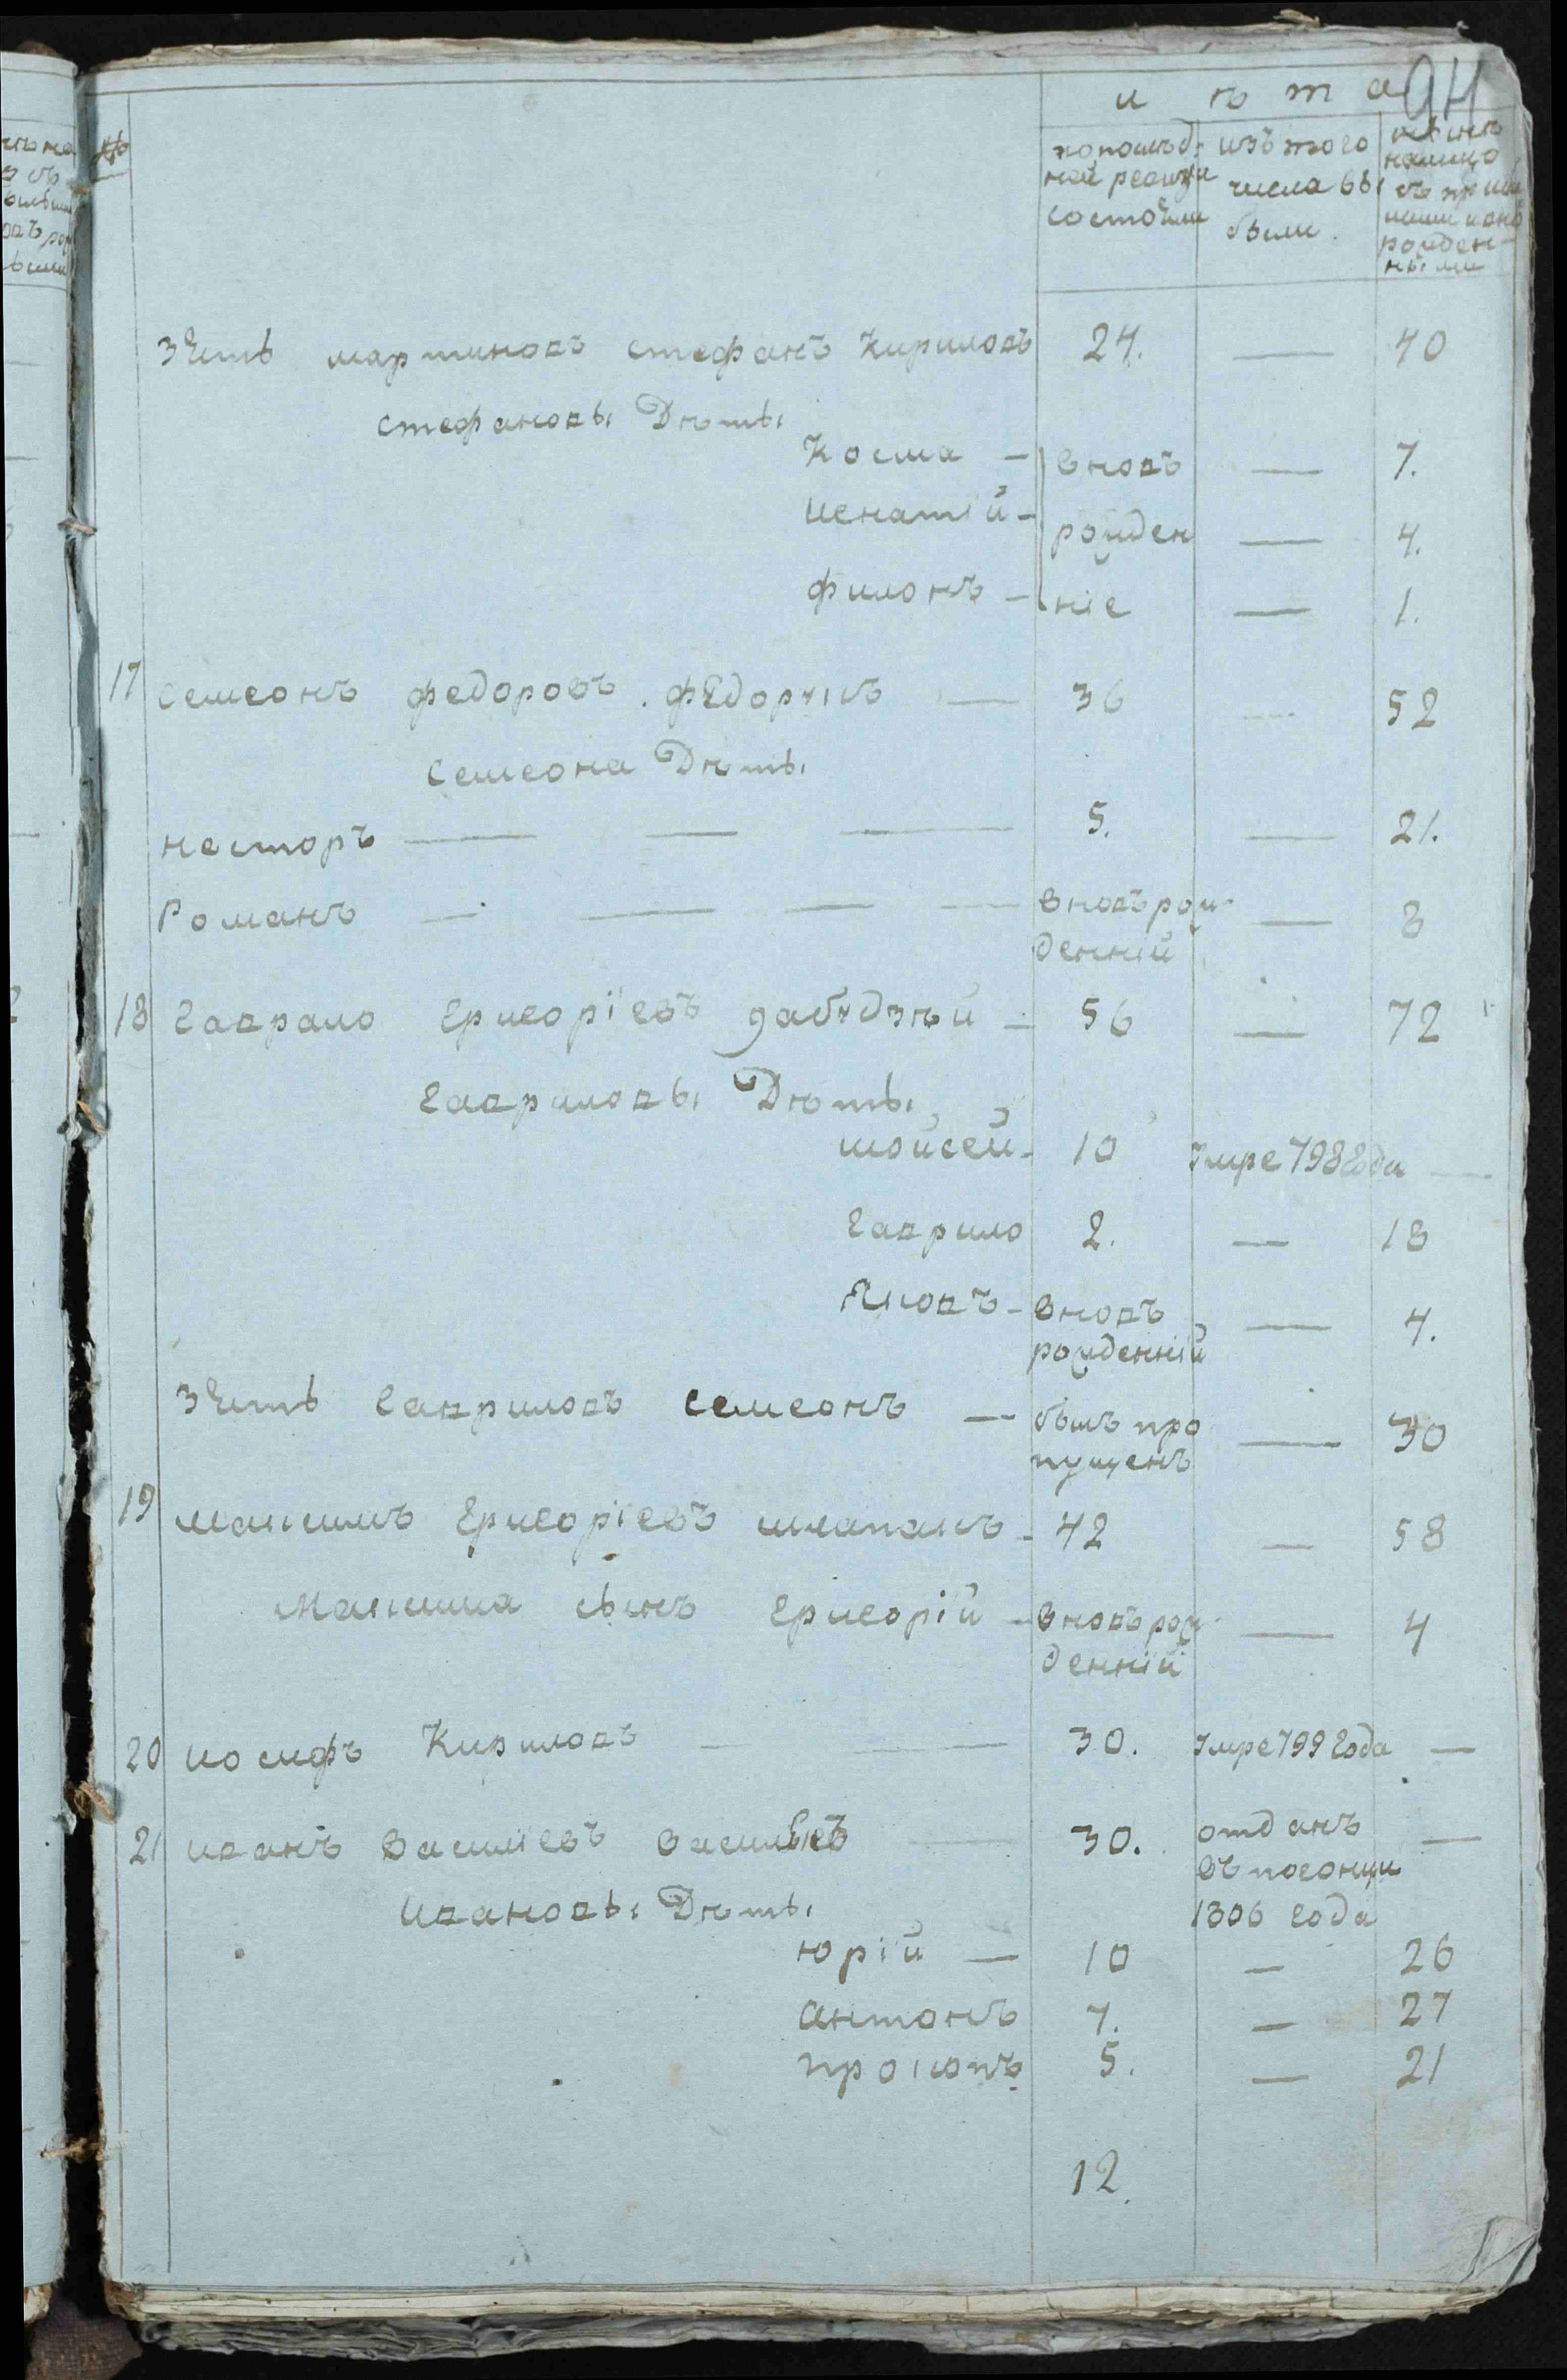 94
лѣта
№
по послѣд-
ней ревизіи
состояли
изъ того
числа вы
были
нынѣ
налицо
съ при
рожден-
ными
зять мартиновъ стефанъ Кириловъ 24. — 40
стефановы Дѣты
Косма — вновъ — 7.
игнатій — рожден — 4.
филонъ — ніе — 1.
17 семеонъ федоровъ федорчукъ — 36 — 52
семеона Дѣты
несторъ — — — 5. — 21.
Романъ — — — — вновъ рож — 8
денній
18 гаврило григоріевъ — 56 — 72
гавриловы Дѣты
мойсей — 10 умре 798 года —
гаврило 2. — 18
Яковъ — вновъ — 4.
рожденній
зять гавриловъ семеонъ — былъ про — 30
пущенъ
19 максимъ григоріевъ шлапакъ — 42 — 58
максима сынъ григорій — вновъ рож — 4
денній
20 иосифъ Кириловъ — — 30. умре 799 года —
21 иванъ василіевъ васильевъ — 30. отданъ —
въ погонци
1806 года
ивановы Дѣты
юрій — 10 — 26
антонъ 7. — 27
прокопъ 5. — 21
12.